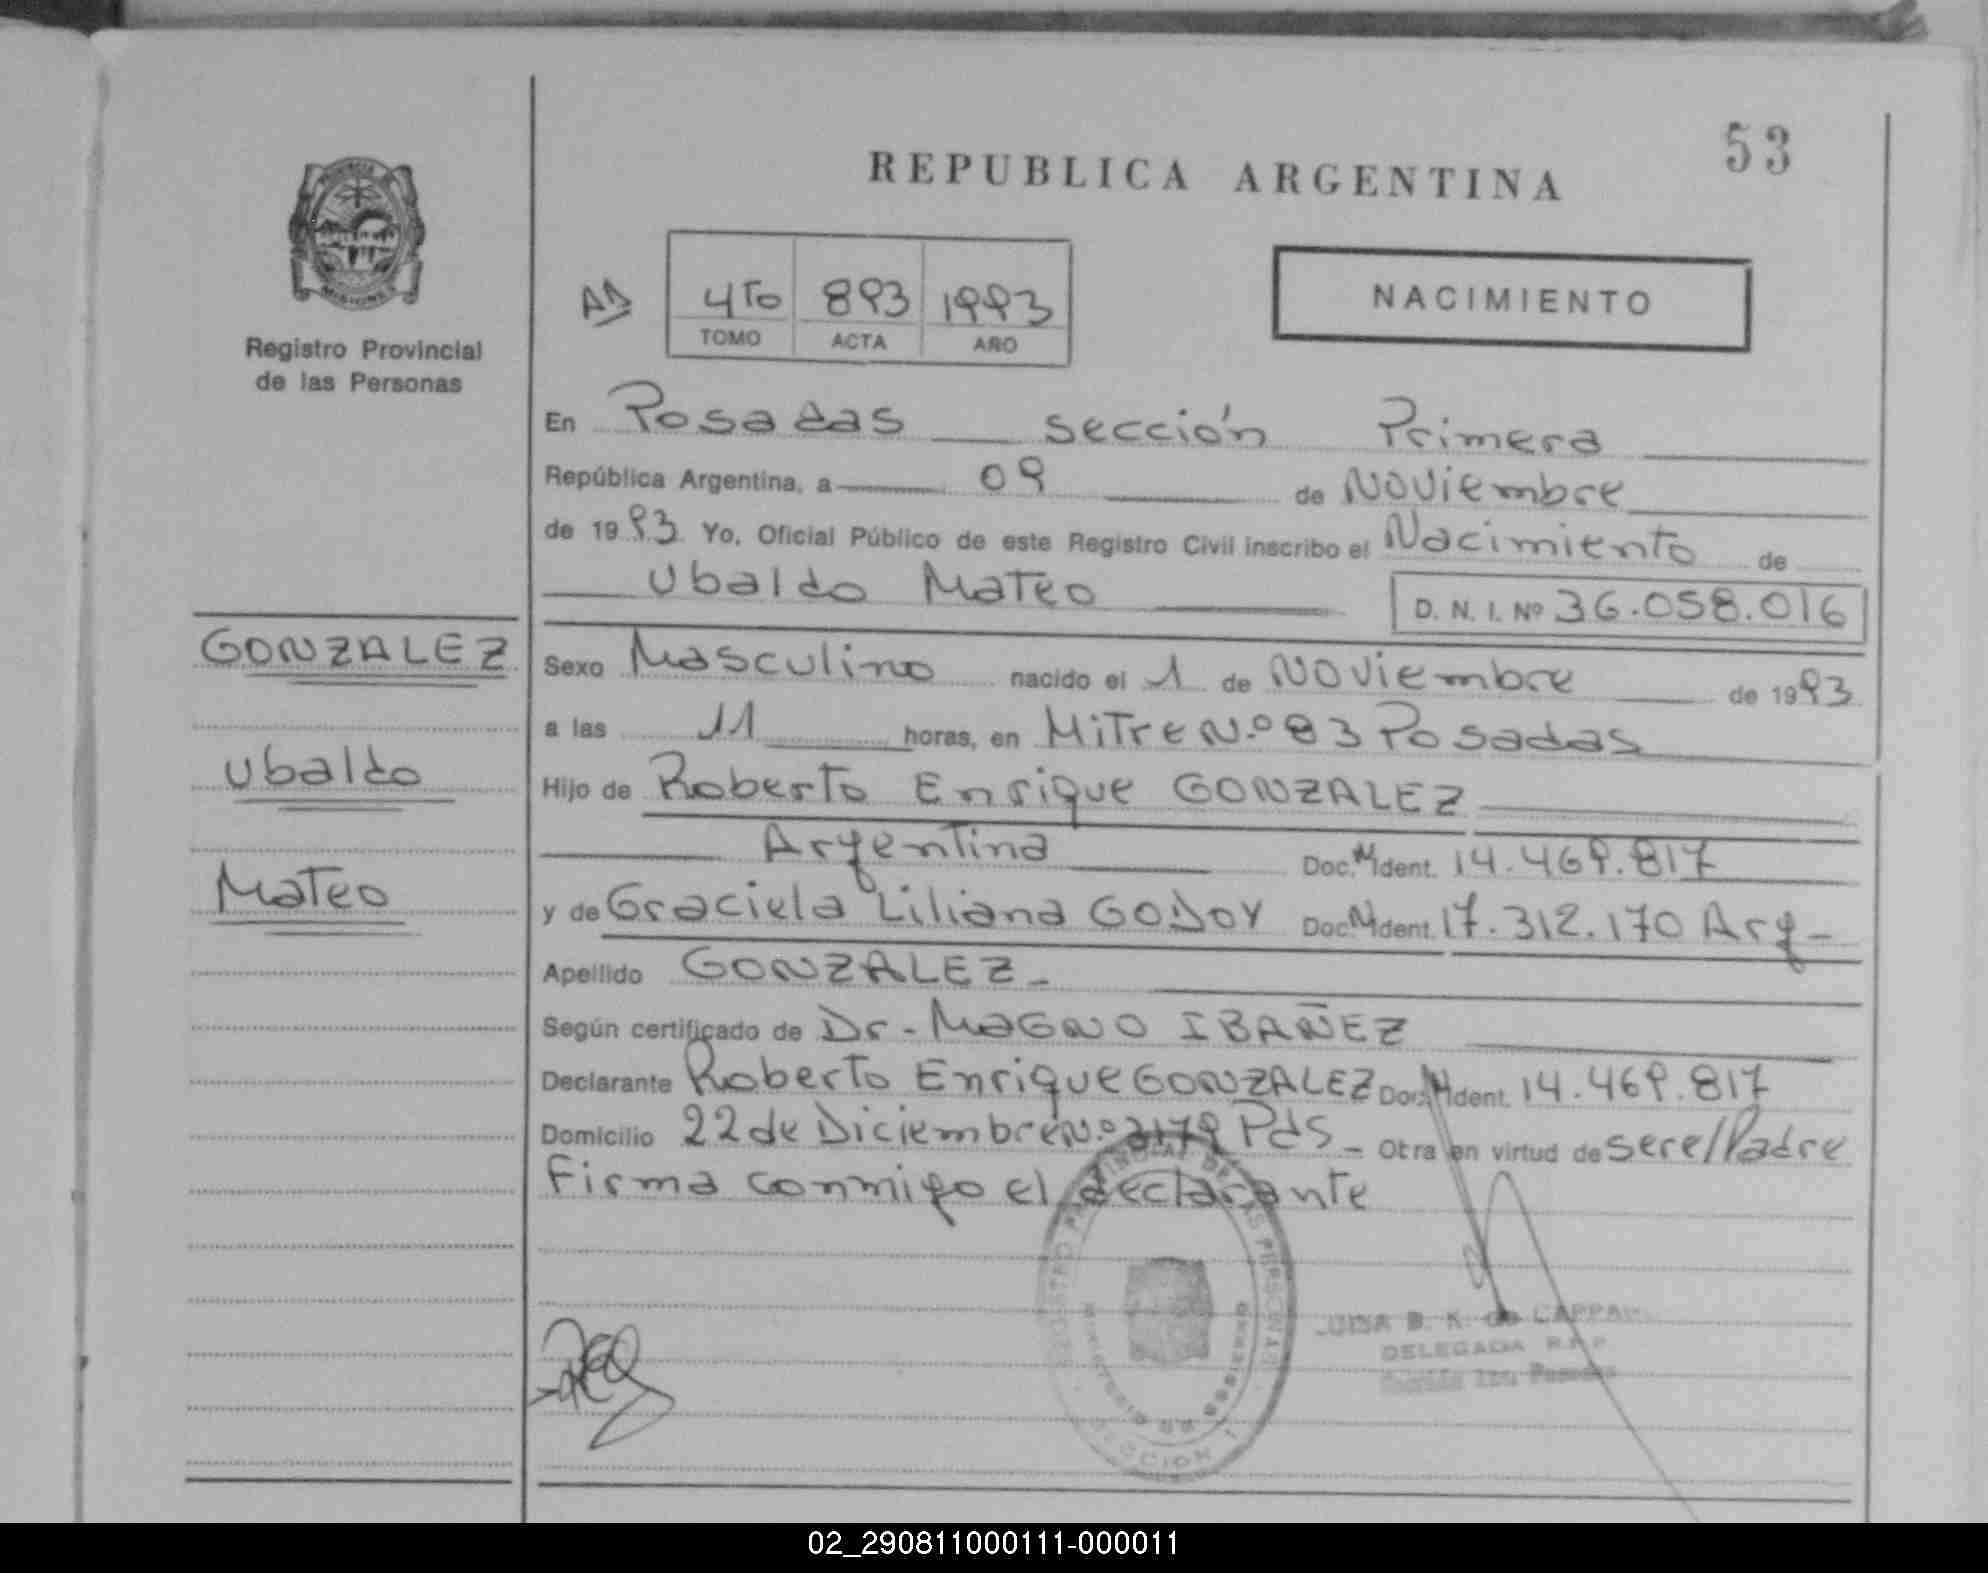 53
REPUBLICA ARGENTINA
NACIMIENTO
4To 893 1993
TOMO ACTA AÑO
Registro Provincial
de las Personas
En Posadas sección Primera
República Argentina, a 09 de Noviembre
de 1993 Yo, Oficial Público de este Registro Civil inscribo el Nacimiento de
Ubaldo Mateo D. N. I. Nº 36.058.016
GONZALEZ
Ubaldo
Mateo
Sexo Masculino nacido el 1 de Noviembre de 1993
a las 11 horas, en Mitre N.º 83 Posadas
Hijo de Roberto Enrique GONZALEZ
Argentina Doc. N Ident. 14.469.817
y de Graciela Liliana GODOY Doc. N Ident. 17.312.170 Arg-
Apellido GONZALEZ-
Según certificado de Dr- MAGNO IBAÑEZ
Declarante Roberto Enrique GONZALEZ Doc. N Ident. 14.469.817
Domicilio 22 de Diciembre N.º 2179 Pds- Otra en virtud de ser el Padre
Firma conmigo el declarante
REGISTRO PROVINCIAL DE LAS PERSONAS
SECCION 1
MINISTERIO DE GOBIERNO
B. K. de
DELEGADA R.P.P
02_290811000111-000011